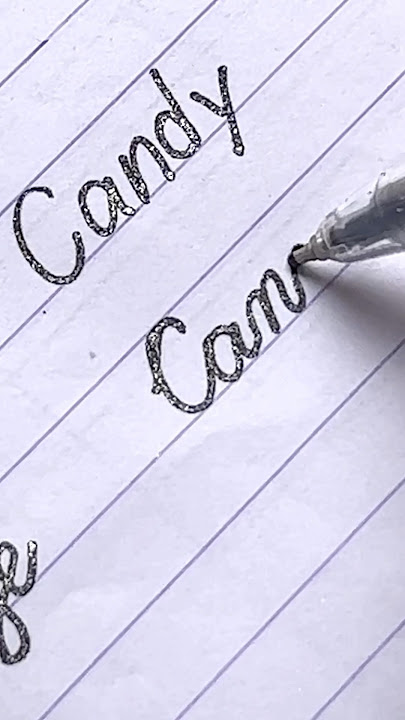 Candy
Can